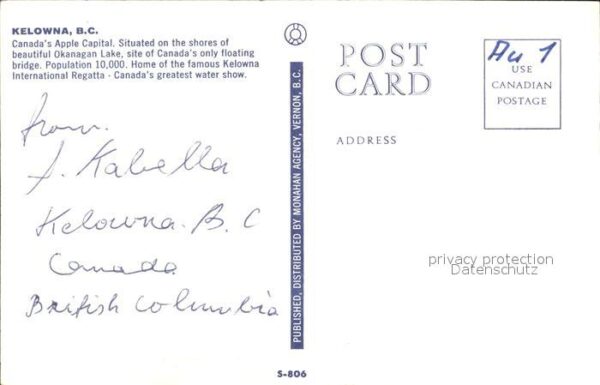 KELOWNA, B.C.
Canada's Apple Capital. Situated on the shores of
beautiful Okanagan Lake, site of Canada's only floating
bridge. Population 10,000. Home of the famous Kelowna
International Regatta - Canada's greatest water show.
from.
J. Kabella
Kelowna. B. C
Canada
British Columbia
PUBLISHED, DISTRIBUTED BY MONAHAN AGENCY, VERNON, B.C.
S-806
POST
CARD
ADDRESS
Au 1
USE
CANADIAN
POSTAGE
privacy protection
Datenschutz